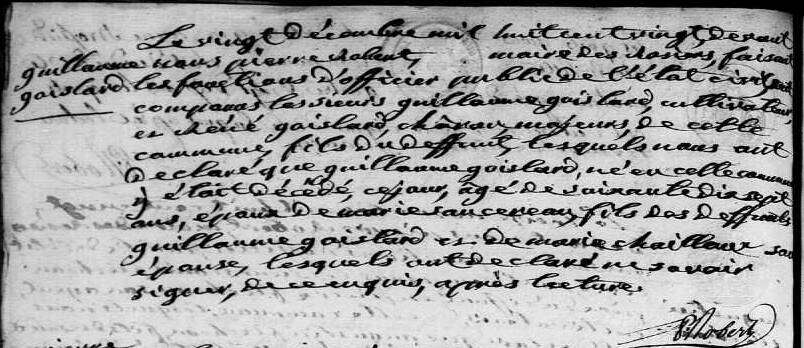 Le vingt décembre mil huit cent vingt devant
guillaume nous pierre Robert, maire des Rosiers, faisant
goislard les fonctions d'officier public de l'état civil sont
comparus les sieurs guillaume goislard, cultivateur,
et Réné goislard, majeurs de cette
commune, fils du deffunt, lesquels nous ont
declaré que guillaume goislard, né en cette commune
y étoit décédé, ce jour, agé de soixante dix sept
ans, époux de marie sanceneau, fils des deffunts
guillaume goislard et de marie chailloux son
épouse, lesquels ont declaré ne savoir
signer, de ce enquis, après lecture
PRobert